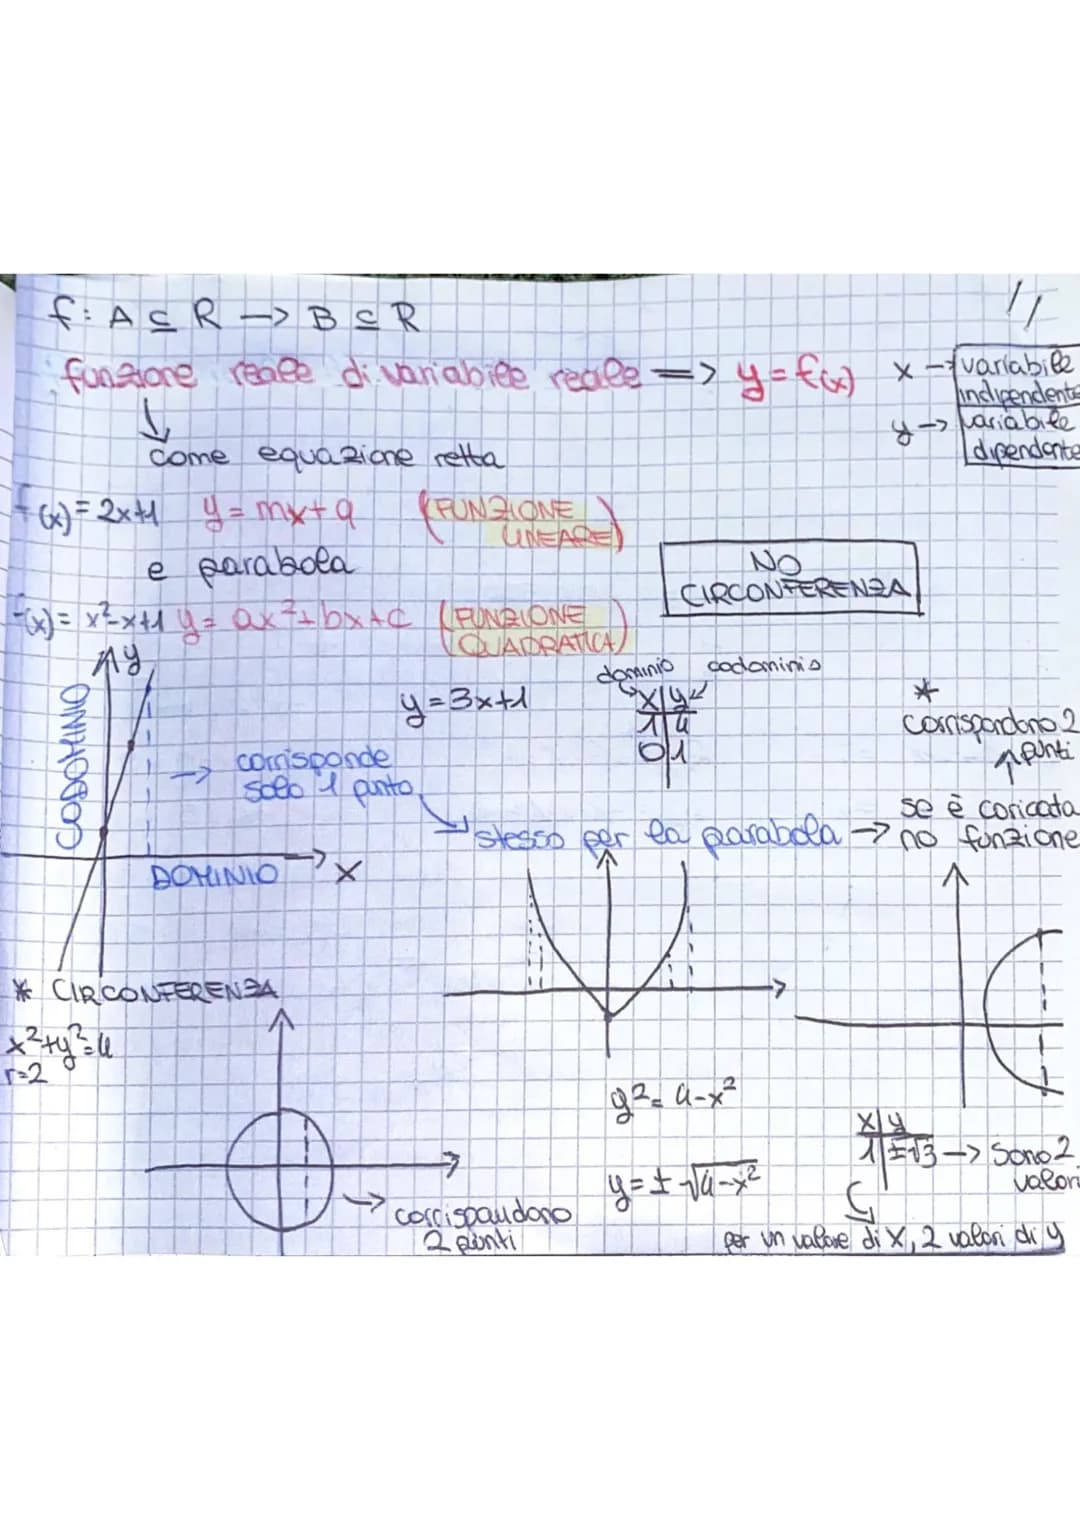 f: A ⊆ R -> B ⊆ R
funzione reale di variabile reale => y = f(x)
x -> variabile indipendente
y -> variabile dipendente
come equazione retta
f(x) = 2x+1 y = mx+q (FUNZIONE LINEARE)
e parabola
NO
CIRCONFERENZA
f(x) = x²-x+1 y = ax²+bx+c (FUNZIONE QUADRATICA)
y
CODOMINIO
y = 3x+1
dominio codominio
x|y
1|4
0|1
*
corrispondono 2
punti
-> corrisponde
solo 1 punto
se è coricata
stesso per la parabola -> no funzione
DOMINIO x
* CIRCONFERENZA
x²+y²=4
r=2
y² = 4-x²
x|y
1|±√3 -> sono 2
valori
y = ± √4-x²
-> corrispondono
2 punti
per un valore di x, 2 valori di y